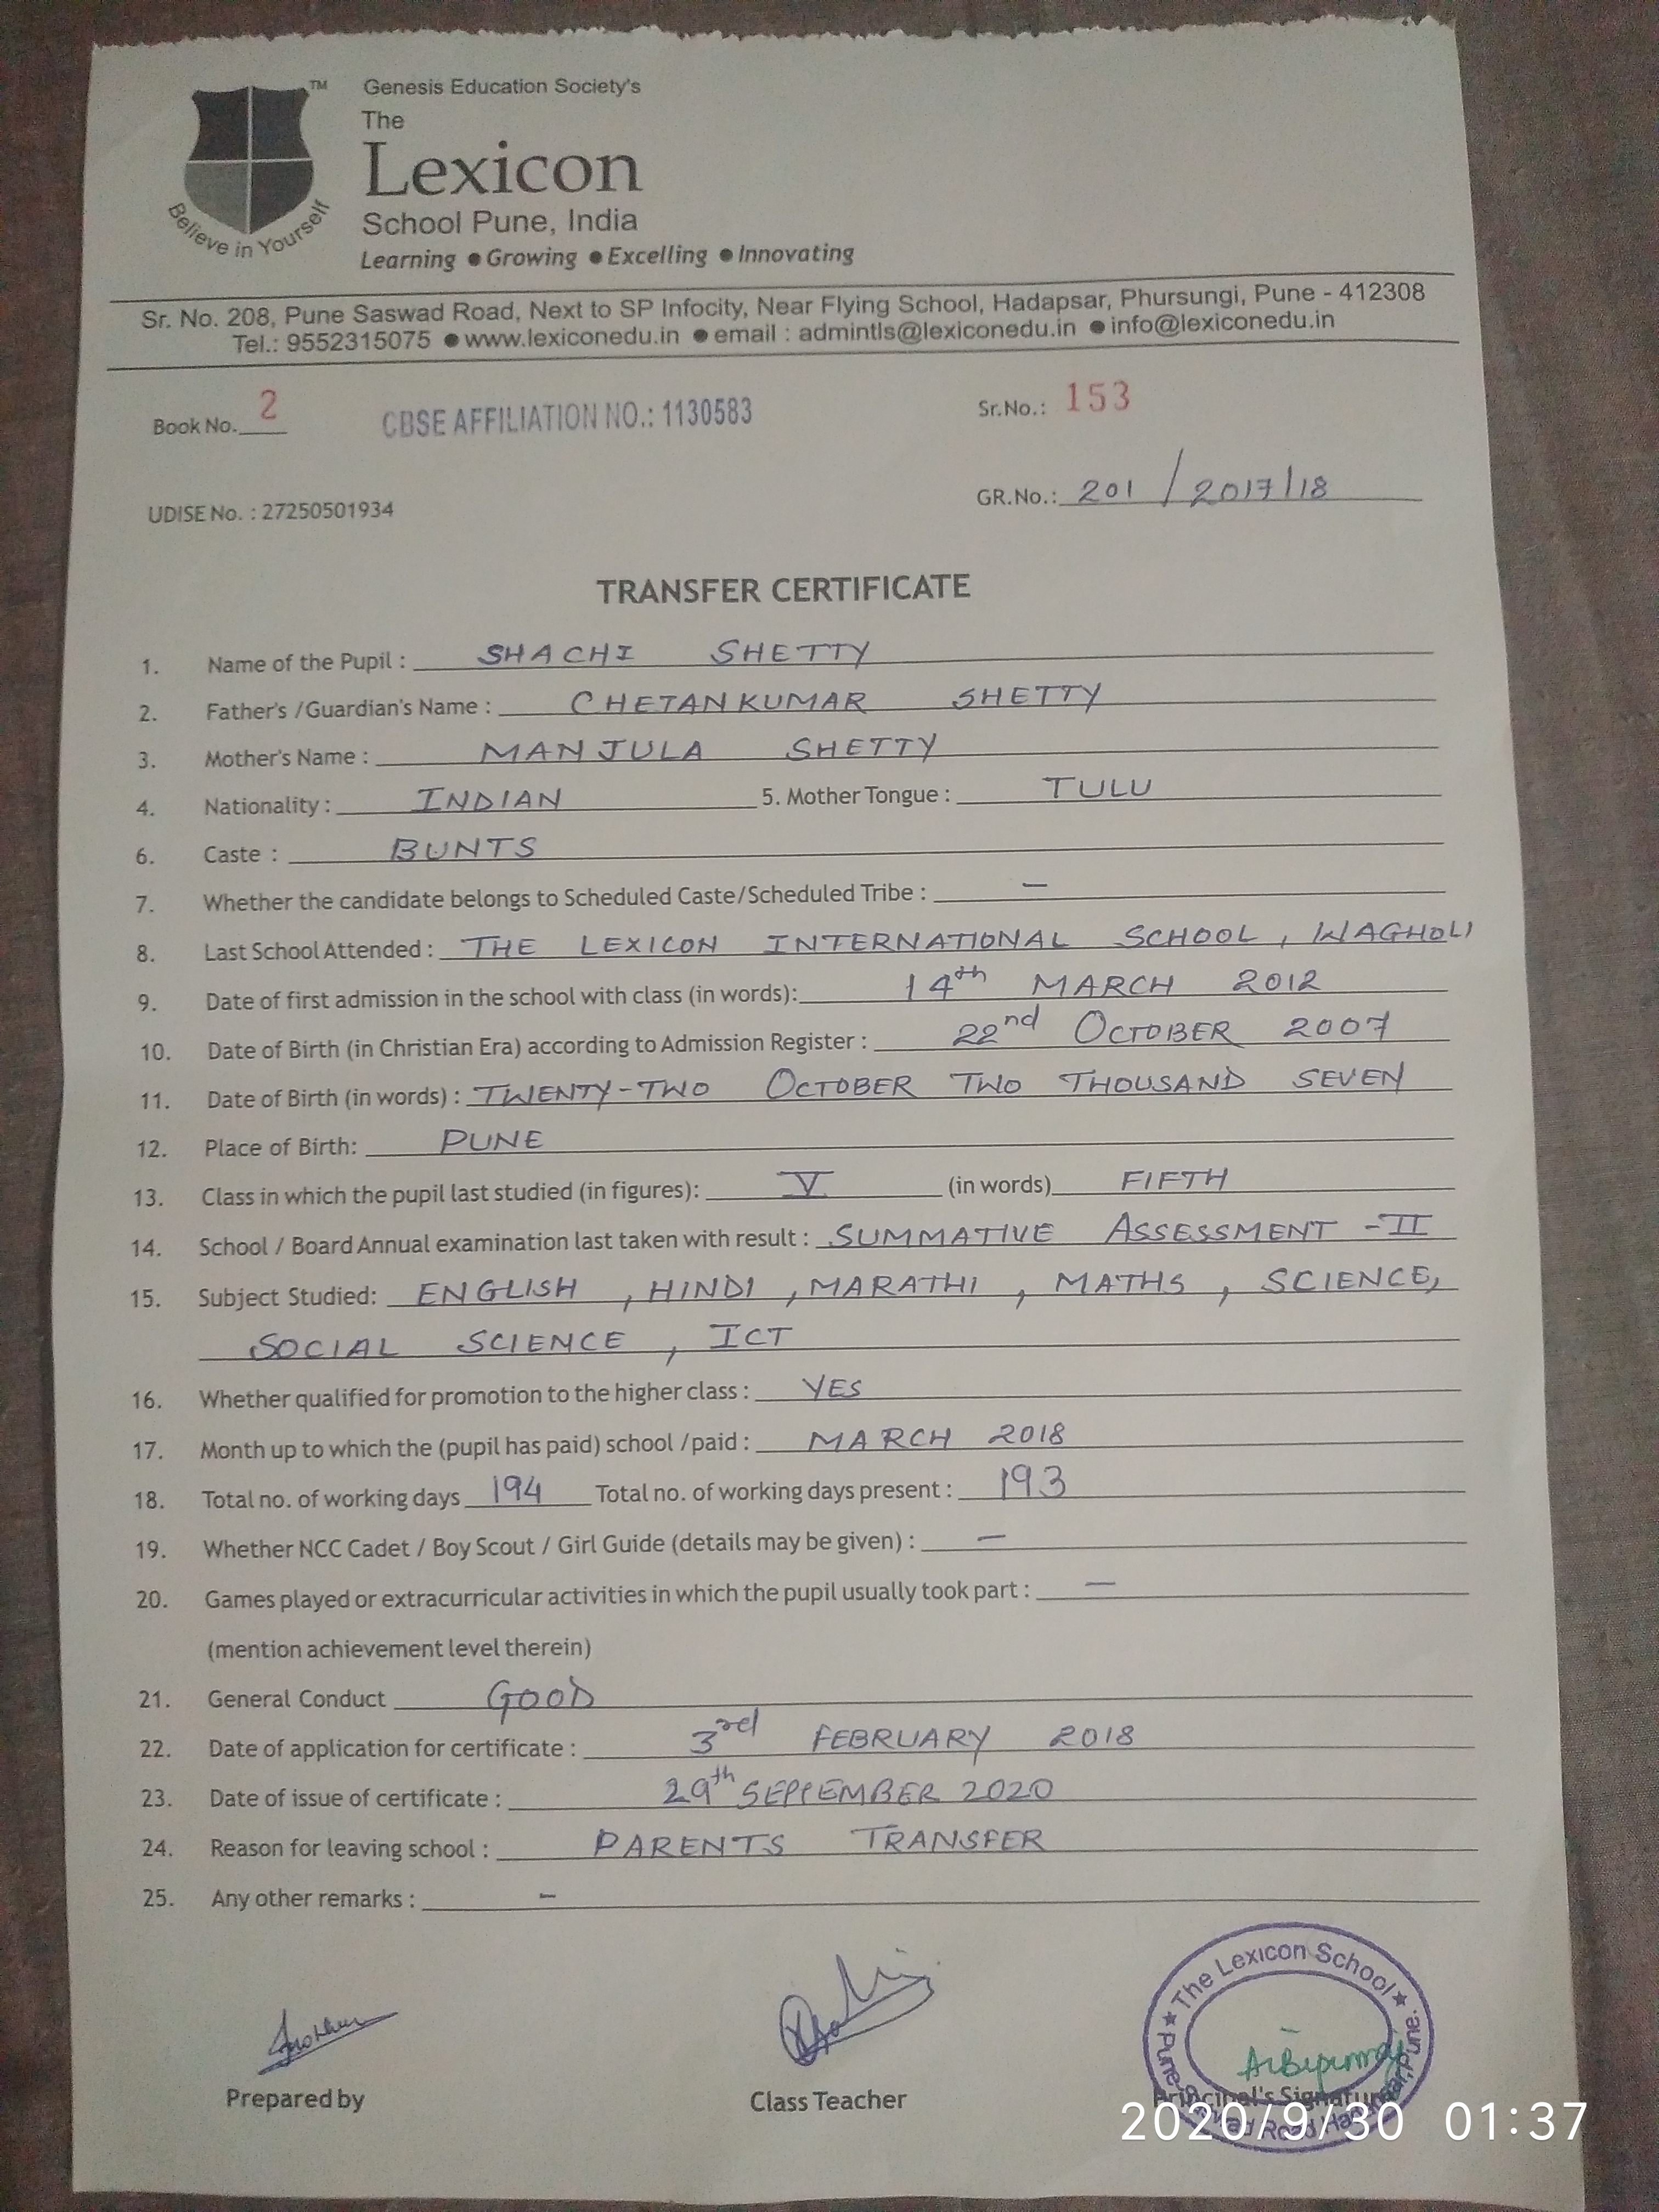 TM
Genesis Education Society's
The
Lexicon
School Pune, India
Learning ● Growing ● Excelling ● Innovating
Believe in Yourself
Sr. No. 208, Pune Saswad Road, Next to SP Infocity, Near Flying School, Hadapsar, Phursungi, Pune - 412308
Tel.: 9552315075 ● www.lexiconedu.in ● email : admintls@lexiconedu.in ● info@lexiconedu.in
Book No. 2 CBSE AFFILIATION NO.: 1130583 Sr.No.: 153
UDISE No. : 27250501934 GR.No.: 201 / 2017/18
TRANSFER CERTIFICATE
1. Name of the Pupil : SHACHI SHETTY
2. Father's /Guardian's Name : CHETANKUMAR SHETTY
3. Mother's Name : MANJULA SHETTY
4. Nationality : INDIAN 5. Mother Tongue : TULU
6. Caste : BUNTS
7. Whether the candidate belongs to Scheduled Caste/Scheduled Tribe : —
8. Last School Attended : THE LEXICON INTERNATIONAL SCHOOL, WAGHOLI
9. Date of first admission in the school with class (in words): 14th MARCH 2012
10. Date of Birth (in Christian Era) according to Admission Register : 22nd OCTOBER 2007
11. Date of Birth (in words) : TWENTY-TWO OCTOBER TWO THOUSAND SEVEN
12. Place of Birth: PUNE
13. Class in which the pupil last studied (in figures): V (in words) FIFTH
14. School / Board Annual examination last taken with result : SUMMATIVE ASSESSMENT -II
15. Subject Studied: ENGLISH, HINDI, MARATHI, MATHS, SCIENCE,
SOCIAL SCIENCE, ICT
16. Whether qualified for promotion to the higher class : YES
17. Month up to which the (pupil has paid) school /paid : MARCH 2018
18. Total no. of working days 194 Total no. of working days present : 193
19. Whether NCC Cadet / Boy Scout / Girl Guide (details may be given) : —
20. Games played or extracurricular activities in which the pupil usually took part : —
(mention achievement level therein)
21. General Conduct GOOD
22. Date of application for certificate : 3rd FEBRUARY 2018
23. Date of issue of certificate : 29th SEPTEMBER 2020
24. Reason for leaving school : PARENTS TRANSFER
25. Any other remarks : -
★ The Lexicon School ★
Pune-Saswad Road, Hadapsar, Pune.
Prepared by Class Teacher Principal's Signature
2020/9/30 01:37